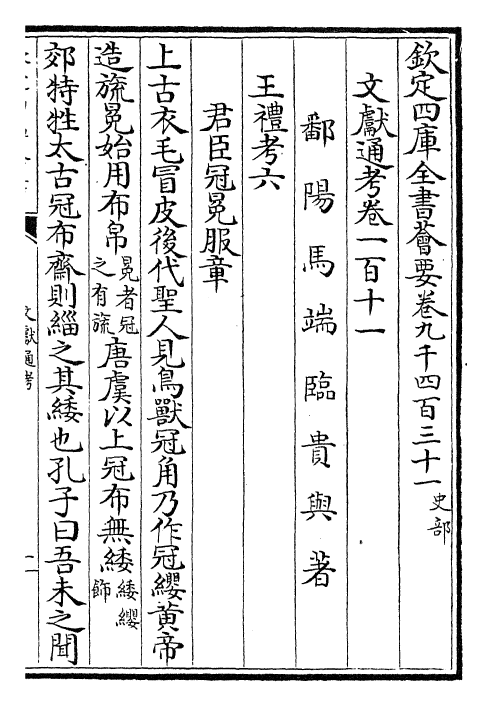 欽定四庫全書薈要卷九千四百三十一史部
文獻通考卷一百十一
鄱陽馬端臨貴與著
王禮考六
君臣冠冕服章
上古衣毛冒皮後代聖人見鳥獸冠角乃作冠纓黃帝
造旒冕始用布帛冕者冠之有旒唐虞以上冠布無緌緌纓飾
郊特牲太古冠布齋則緇之其緌也孔子曰吾未之聞
文獻通考